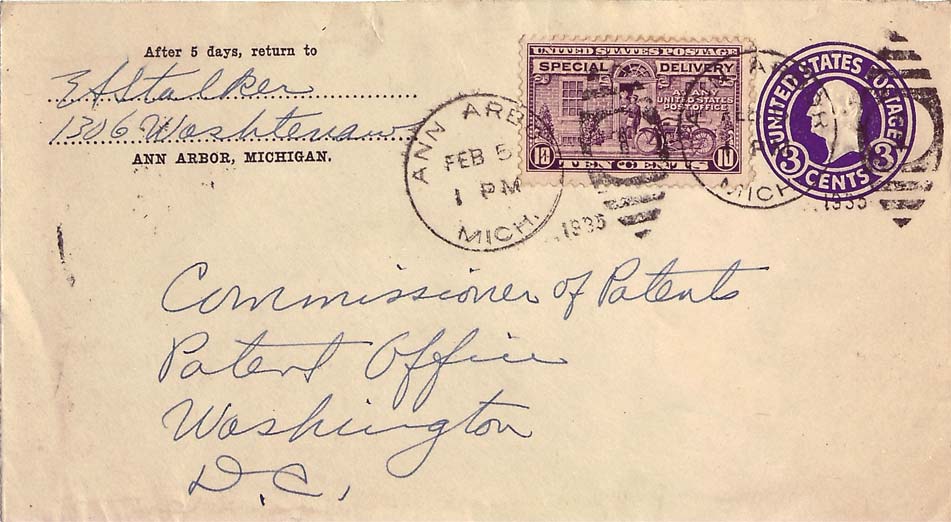 After 5 days, return to
E A Stalker
1306 Washtenaw
ANN ARBOR, MICHIGAN.
ANN ARB
FEB 5
1 PM
MICH.
1935
UNITED STATES POSTAGE
SPECIAL DELIVERY
AT ANY
UNITED STATES
POST OFFICE
10 TEN CENTS 10
MICH
1935
UNITED STATES POSTAGE
3 CENTS 3
Commissioner of Patents
Patent Office
Washington
D.C.